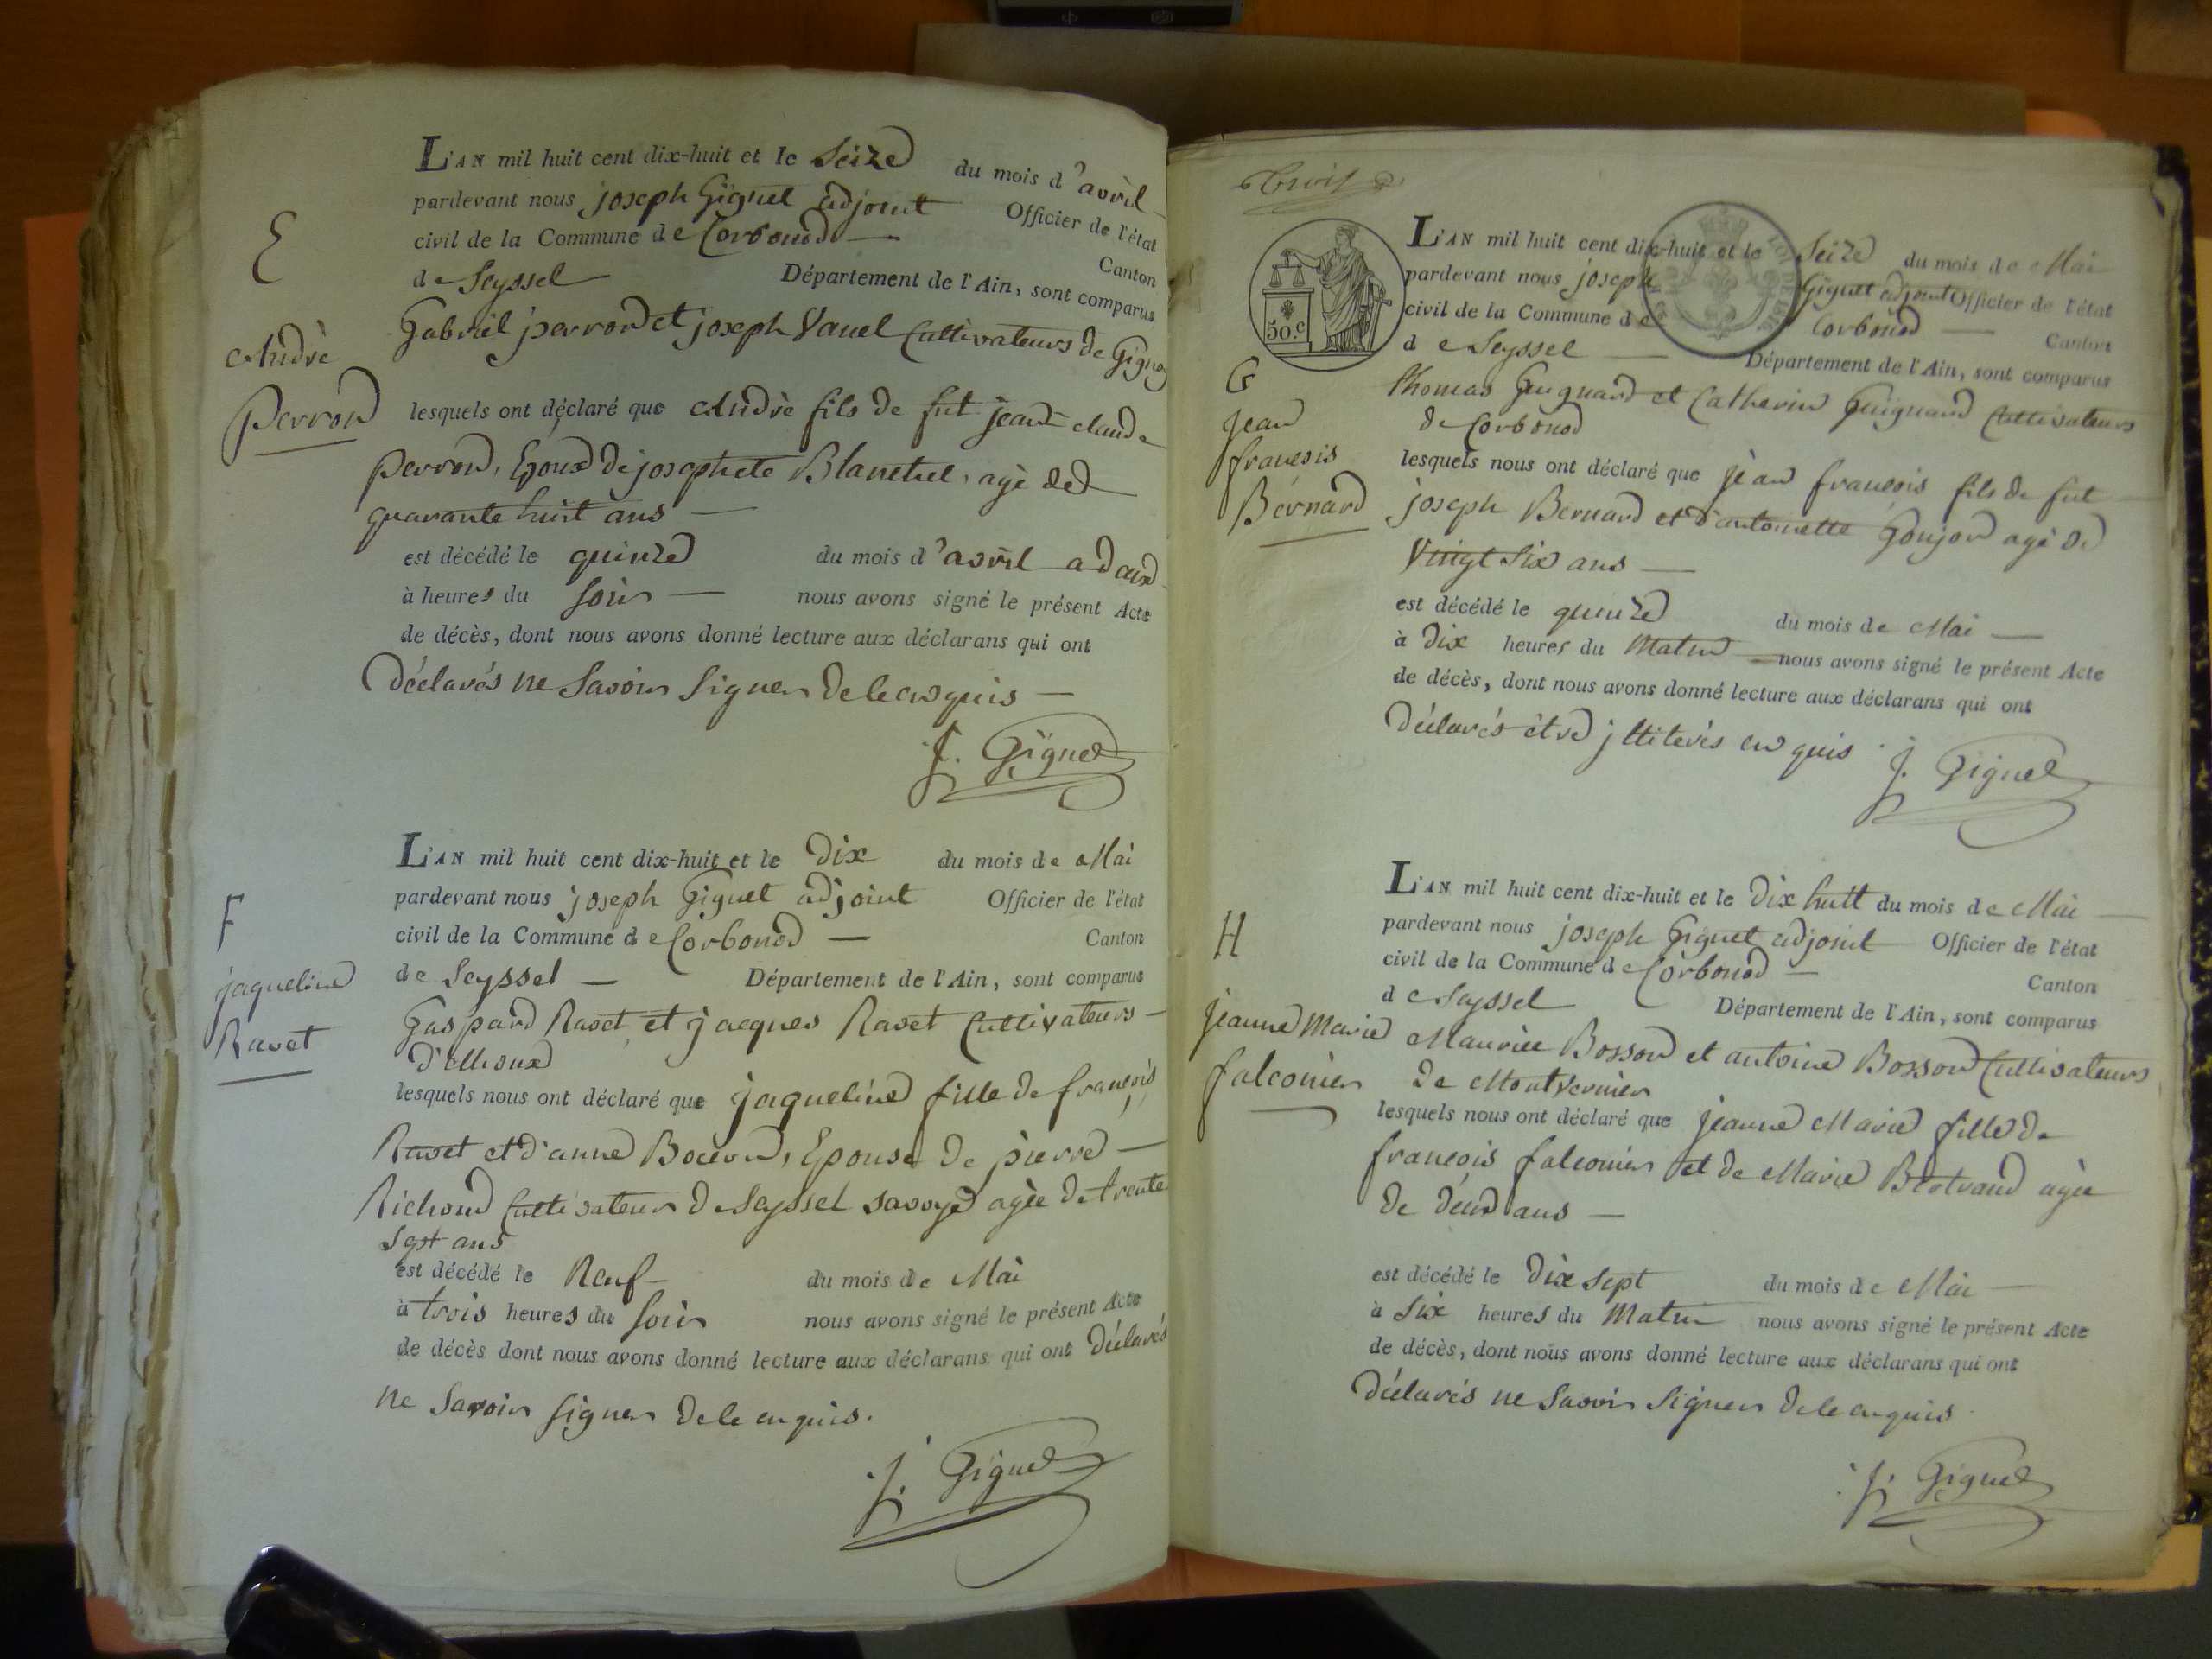 E
André
Perron
L'AN mil huit cent dix-huit et le Seize du mois d'avril
pardevant nous joseph Giguet adjoint Officier de l'état
civil de la Commune de Corbonod Canton
de Seyssel Département de l'Ain, sont comparus
Gabriel perron et joseph Vauel Cultivateurs de
lesquels ont déclaré que André fils de fut jean claude
perron, Epoux de josephete Blanchet, agé de
quarante huit ans
est décédé le quinze du mois d'avril
à heures du soir nous avons signé le présent Acte
de décès, dont nous avons donné lecture aux déclarans qui ont
déclarés ne Savoir Signer de le enquis
J. Giguet
F
jaqueline
Ravet
L'AN mil huit cent dix-huit et le Dix du mois de Mai
pardevant nous joseph Giguet adjoint Officier de l'état
civil de la Commune de Corbonod Canton
de Seyssel Département de l'Ain, sont comparus
Gaspard Ravet et jacques Ravet Cultivateurs
lesquels nous ont déclaré que jaqueline fille de francois
Ravet et d'anne Epouse de pierre
Richond Cultivateur de Seyssel savoye agée de trente
sept ans
est décédé le Neuf du mois de Mai
à trois heures du soir nous avons signé le présent Acte
de décès dont nous avons donné lecture aux déclarans qui ont déclarés
ne Savoir signer de le enquis.
J. Giguet
trois
50.c
G
jean
francois
Bernard
L'AN mil huit cent dix-huit et le Seize du mois de Mai
pardevant nous joseph Giguet adjoint Officier de l'état
civil de la Commune de Corbonod Canton
de Seyssel Département de l'Ain, sont comparus
thomas Guignard et Catherine Guignard Cultivateurs
de Corbonod
lesquels nous ont déclaré que jean francois fils de fut
joseph Bernard et d'antoinette Goujon agé de
Vingt Six ans
est décédé le quinze du mois de Mai
à Dix heures du Matin nous avons signé le présent Acte
de décès, dont nous avons donné lecture aux déclarans qui ont
déclarés être jlliterés enquis
J. Giguet
H
jeanne Marie
falconier
L'AN mil huit cent dix-huit et le Dix huit du mois de Mai
pardevant nous joseph Giguet adjoint Officier de l'état
civil de la Commune de Corbonod Canton
de Seyssel Département de l'Ain, sont comparus
Maurice Bosson et antoine Bosson Cultivateurs
de Montvernier
lesquels nous ont déclaré que jeanne Marie fille de
francois falconier et de Marie Bertrand agée
de deux ans
est décédé le Dix Sept du mois de Mai
à Six heures du Matin nous avons signé le présent Acte
de décès, dont nous avons donné lecture aux déclarans qui ont
déclarés ne Savoir Signer de le enquis
J. Giguet